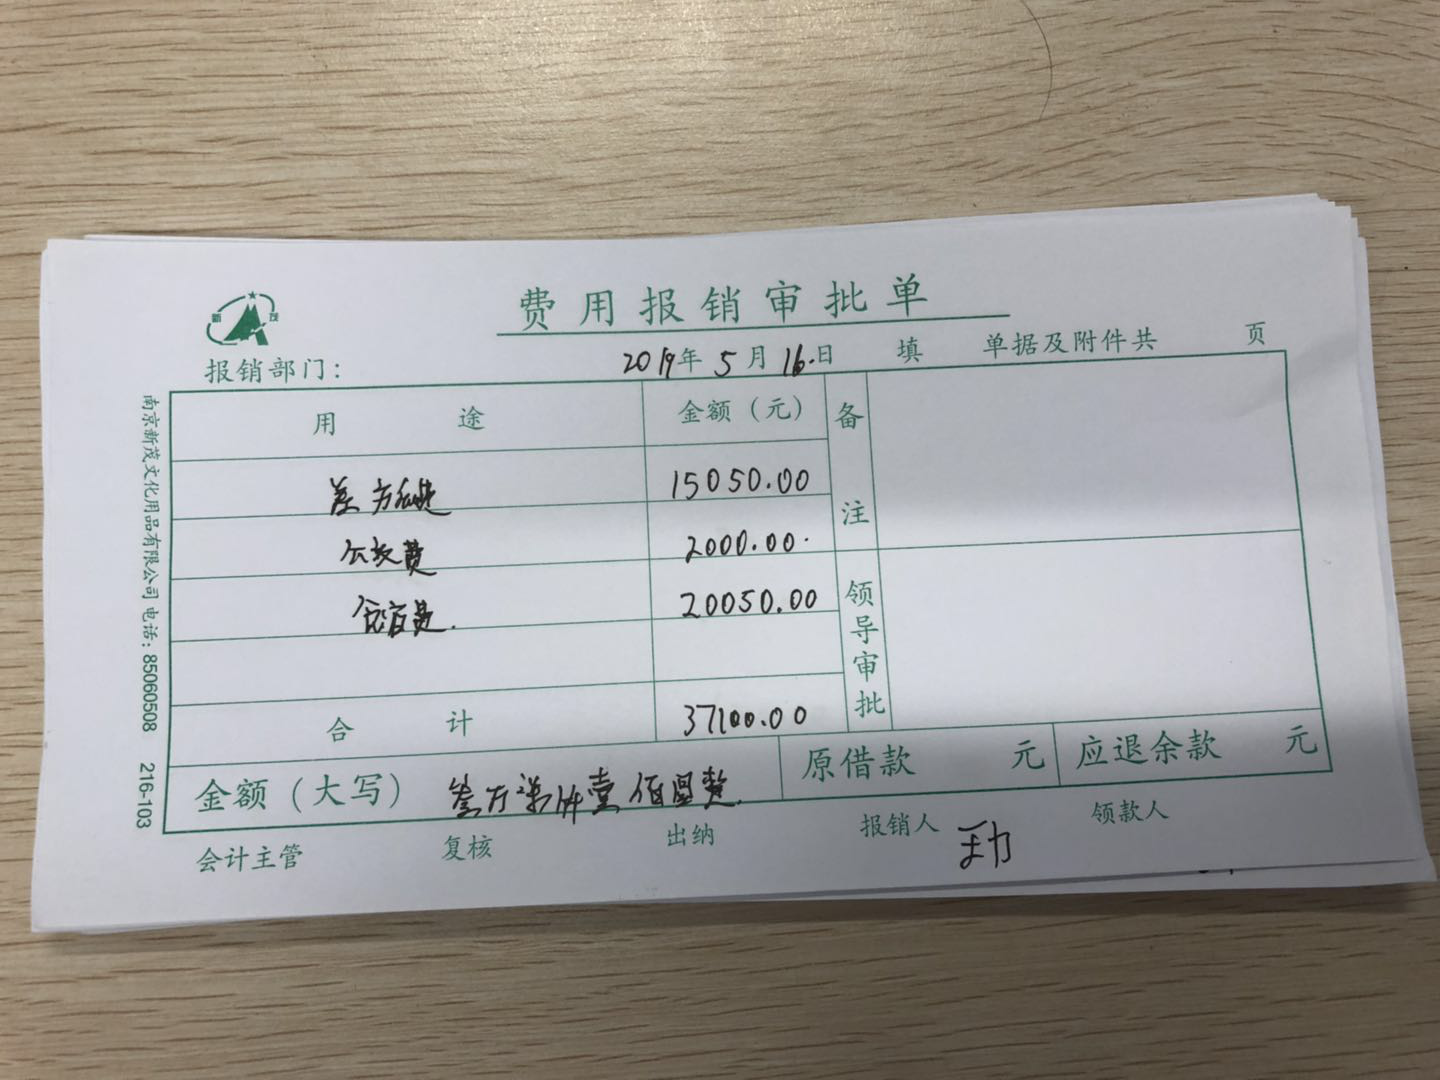 费用报销审批单
新 茂
报销部门： 2019年 5月 16日 填 单据及附件共 页
用 途 金额（元） 备注
15050.00
费 2000.00
住宿费 20050.00
领导审批
合 计 37100.00
金额（大写） 叁万柒仟壹佰圆整 原借款 元 应退余款 元
会计主管 复核 出纳 报销人 领款人
南京新茂文化用品有限公司 电话：85060508 216-103